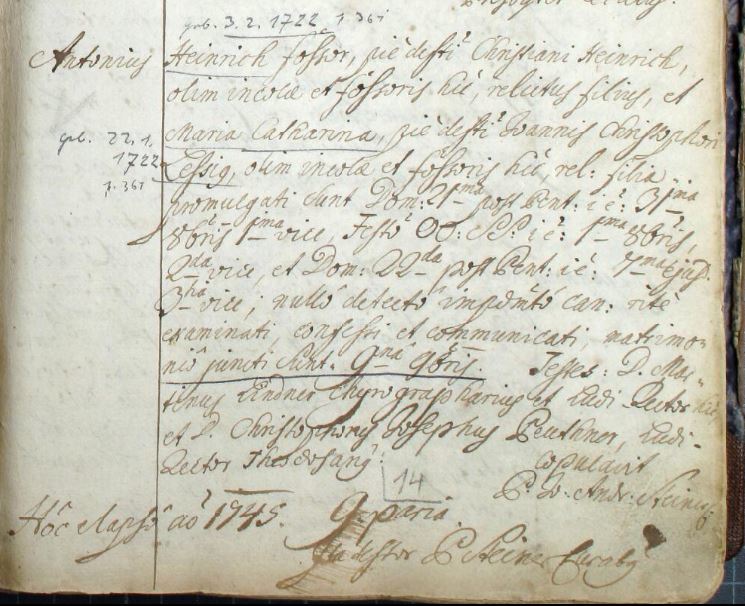 geb. 3. 2. 1722 p. 361
Antonius Heinrich fossor, piè defti Christiani Heinrich,
olim incolæ et fossoris hic, relictus filius, et
Maria Catharina, piè defti Joannis Christophori
geb. 22. 1.
1722
p. 361
Lessig, olim incolæ et fossoris hic, rel: filia
promulgati sunt Dom: 21ma post Pent: ie: 31ma
8bris 1ma vice, Festo OO: SS: ie: 1ma 9bris,
2da vice, et Dom: 22da post Pent: ie: 7ma ejusd.
3tia vice; nullo detecto impdmto can: ritè
examinati, confessi et communicati, matrimo-
nio juncti sunt 9na 9bris. Testes: D. Mar-
tinus Lindner Chyrographarius et Ludi-Rector hic,
et D. Christophorus Josephus Peuthner, Ludi-
Rector
copulavit
14
P. Jo: Andr:
Hôc elapsô aô 1745. 9. paria.
P Steiner